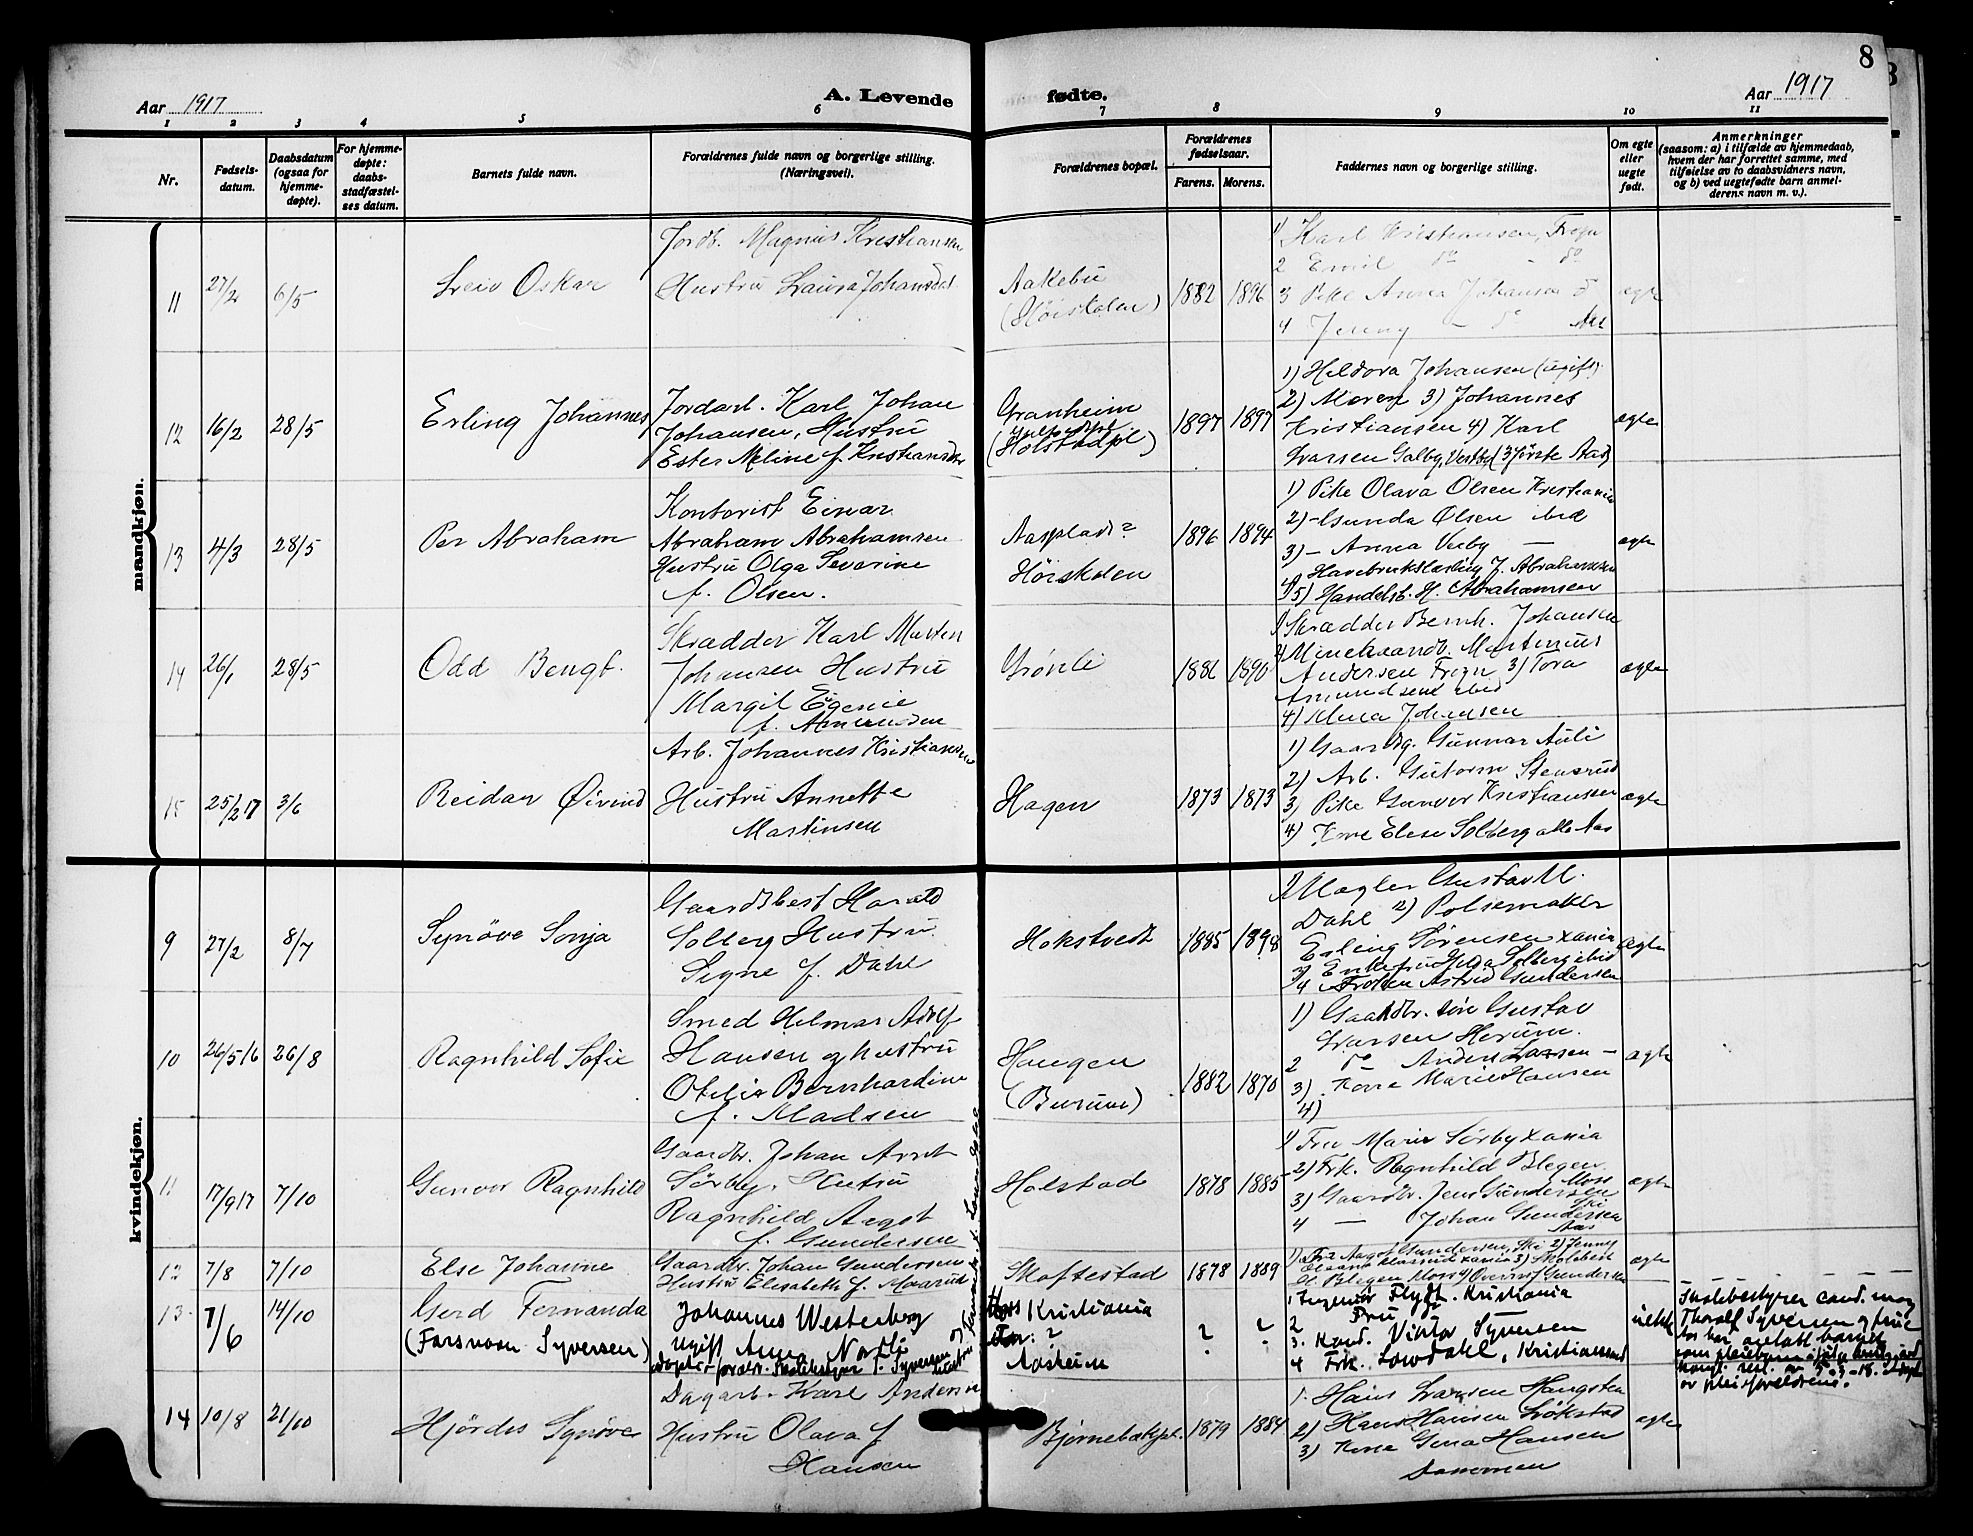 8
Aar 1917
A. Levende
fødte.
Aar 1917
1 2 3 4 5 6 7 8 9 10 11
Nr.
Fødsels-
datum.
Daabsdatum
(ogsaa for
hjemme-
døpte).
For hjemme-
døpte:
daabs-
stadfæstel-
ses datum.
Barnets fulde navn.
Forældrenes fulde navn og borgerlige stilling.
(Næringsvei).
Forældrenes bopæl.
Forældrenes
fødselsaar.
Farens. Morens.
Faddernes navn og borgerlige stilling.
Om egte
eller
uegte
født.
Anmerkninger
(saasom: a) i tilfælde av hjemmedaab,
hvem der har forrettet samme, med
tilføielse av to daabsvidners navn,
og b) ved uegtefødte barn anmel-
derens navn m. v.).
mandkjøn.
11
27/2
6/5
Leiv Oskar
Jordb. Magnus Kristiansen
Hustru Laura Johansdat.
Aakebu
(Hørskolen)
1882
1896
1 Karl Kristiansen, Frogn
2 Emil do - do
3 Pike Anna Johansen do
4 Jenny - do Aas
egte
12
16/2
28/5
Erling Johannes
Jordarb. Karl Johan
Johansen, Hustru
Ester Meline f. Kristiansdtr
Granheim
(Holstadpl)
1897
1897
1) Heldora Johansen (ugift)
2) Moren 3) Johannes
Kristiansen 4) Karl
Larsen Galby, Vestby (3 første Aas)
egte
13
4/3
28/5
Per Abraham
Kontorist Einar
Abraham Abrahamsen
Hustru Olga Severine
f. Olsen.
Aasplads?
Hørskolen
1896
1894
1) Pike Olava Olsen Kristiania
2) - Gunda Olsen ibid
3) - Anna Verby -
4) Havebrukslærling J. Abrahamsen
5) Handelsb. H. Abrahamsen
egte
14
26/1
28/5
Odd Bengt.
Skrædder Karl Marten
Johansen Hustru
Margit Eugenie
f. Amundsen
Grønli
1886
1890
1 Skrædder Bernh. Johansen
2 Martinius
Andersen Frogn 3) Tora
Amundsen ibid
4) Alma Johansen
egte
15
25/2 17
3/6
Reidar Øivind
Arb. Johannes Kristiansen
Hustru Annette
Martinsen
Hagen
1873
1873
1) Gaardbg. Gunnar Auli
2) Arb. Gutorm Stensrud
3) Pike Gunvor Kristiansen
4) Kone Elise Solberg alle Aas
egte
kvindekjøn.
9
27/2
8/7
Synöve Sonja
Gaardbest Harald
Solberg Hustru
Signe f. Dahl
Hokstvedt
1885
1898
1) Mægler Gustav M.
Dahl 2) Pølsemaker
Erling Sørensen Xania
3) Enkefru Helga Solberg ibid
4 Frøken Astrid Gundersen
Ægte
10
26/5 16
26/8
Ragnhild Sofie
Smed Helmar Adolf
Hansen og hustru
Otelie Bernhardine
f. Madsen
Haugen
(Burum)
1882
1870
1) Gaardbr. søn Gustav
Larsen Herum.
2 do Anders Larsen -
3) Kone Marie Hansen
4)
Ægte
11
17/9 17
7/10
Gunvor Ragnhild
Gaardbr. Johan Arnt
Sørby. Hustru
Ragnhild Aagot
f. Gundersen
Holstad
1878
1885
1) Fru Marie Sørby Xania
2) Frk. Ragnhild Blegen
Moss
3) Gaardbr. Jens Gundersen
Ski
4 - Johan Gundersen
Aas
ægte
12
7/8
7/10
Else Johanne
Gaardbr. Johan Gundersen
Hustru Elisabeth f. Maarud
Skoftestad
1878
1889
1) Fru Aagot Gundersen, Ski 2) Jenny
Xania 3) Skolebest
H. Blegen Moss 4) Gundersen
ægte
13
7/6
14/10
Gerd Fernanda
(Farsnavn Syversen)
Johannes Westerberg
Ugift Anna Nordli
adoptiv-foræld. Skolebestyrer T. Syversen og hustru
Mors Kristiania
Far: ?
Aasheim
?
?
1 Ingeniør Flydt. Kristiania
2 Fru
3. Kand. Viktor Syversen
4 Frk. Lowdahl, Kristiansund
uekte
Skolebestyrer cand. mag
Thoralf Syversen og frue
har barnet
14
10/8
21/10
Hjördis Synøve
Dagarb. Karl Andersen
Hustru Olava f
Hansen
Bjørnebækpl.
1879
1884
1. Hans Larsen Haugsten
2) Hans Hansen Løkstad
3) Kone Gina Hansen
sammen
egte